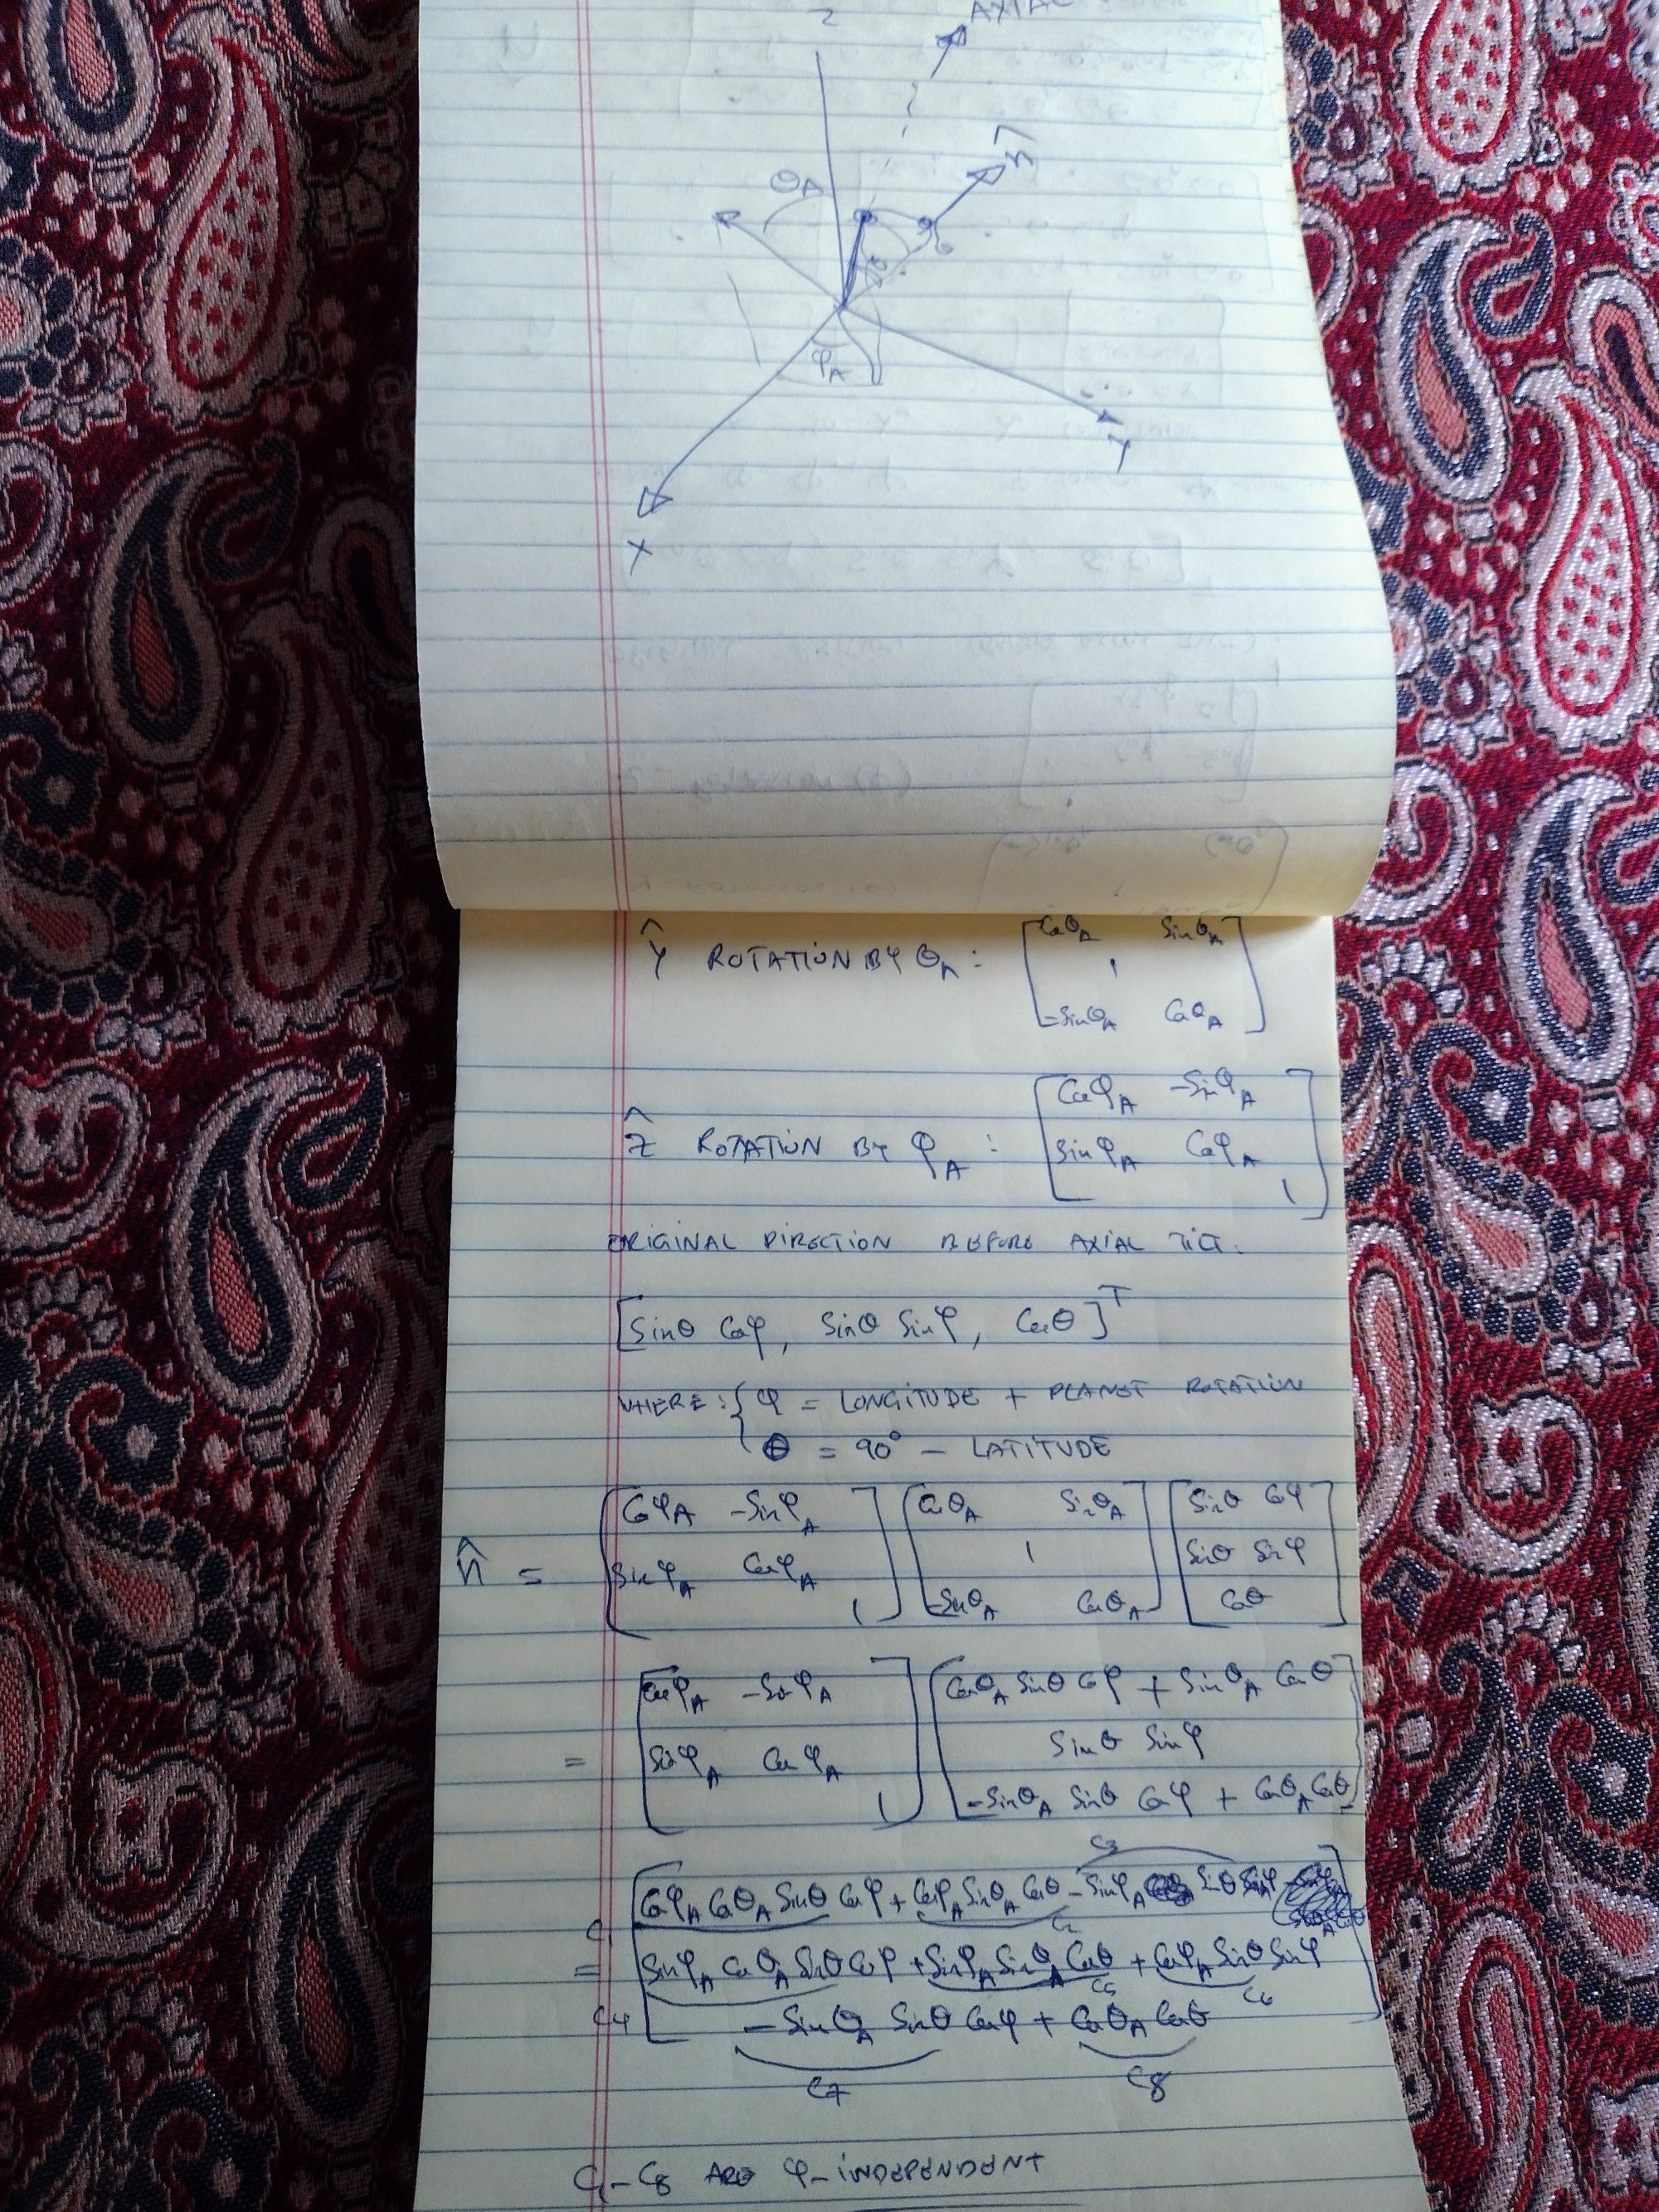 Z
AXIAL
θA
n̂
θ
φA
Y
X
Ŷ ROTATION BY θA : [CosθA SinθA
1
-SinθA CosθA]
Ẑ ROTATION BY φA : [CosφA -SinφA
SinφA CosφA
1]
ORIGINAL DIRECTION BEFORE AXIAL TILT.
[Sinθ Cosφ, Sinθ Sinφ, Cosθ]ᵀ
WHERE : { φ = LONGITUDE + PLANET ROTATION
θ = 90° - LATITUDE
n̂ = [CosφA -SinφA
SinφA CosφA
1] [CosθA SinθA
1
-SinθA CosθA] [Sinθ Cosφ
Sinθ Sinφ
Cosθ]
= [CosφA -SinφA
SinφA CosφA
1] [CosθA Sinθ Cosφ + SinθA Cosθ
Sinθ Sinφ
-SinθA Sinθ Cosφ + CosθA Cosθ]
C3
[CosφA CosθA Sinθ Cosφ + CosφA SinθA Cosθ - SinφA Sinθ Sinφ
C1 C2
= SinφA CosθA Sinθ Cosφ + SinφA SinθA Cosθ + CosφA Sinθ Sinφ
C4 C5 C6
-SinθA Sinθ Cosφ + CosθA Cosθ]
C7 C8
C1-C8 ARE φ-INDEPENDENT